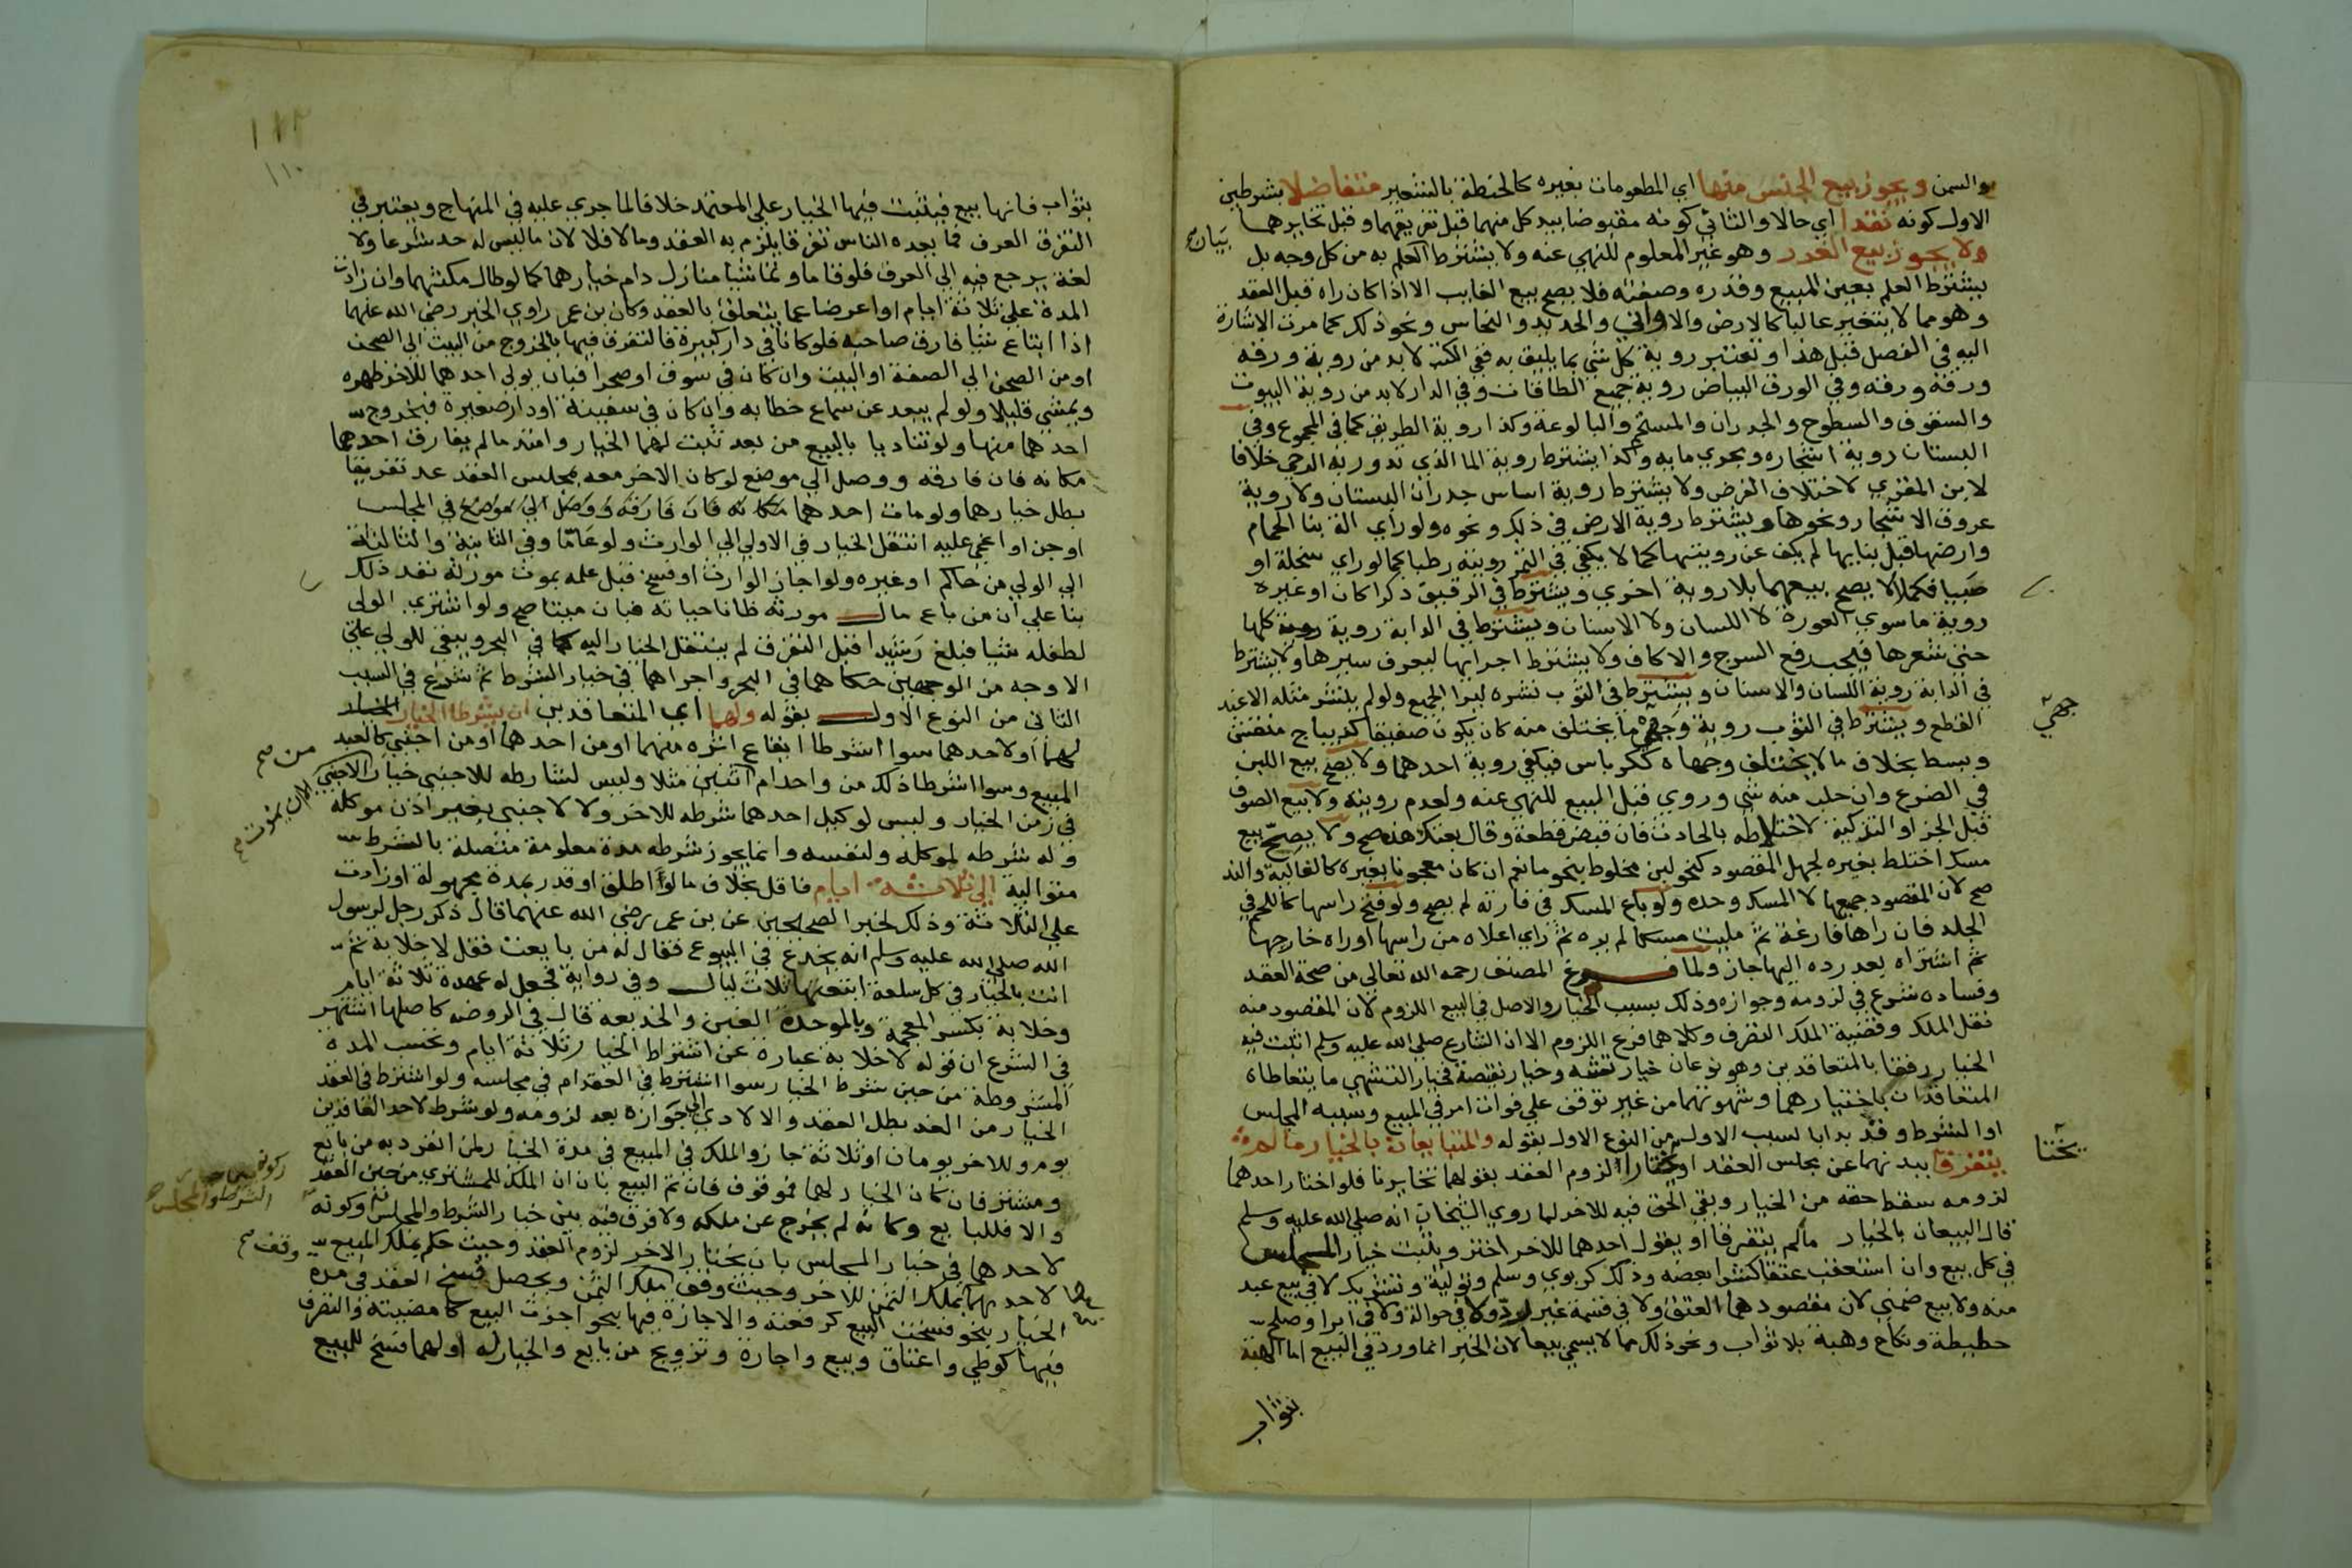 والسمن ويجوز بيع الجنس منها اي المطعومات بغيره كالحنطة بالشعير متفاضلا بشرطين
الاول كونه نقدا اي حالا والثاني كونه مقبوضا بيد كل منهما قبل تفريقهما وقبل تخايرهما
بيان
ولا يجوز بيع الغرر وهو غير المعلوم للنهي عنه ولا يشترط العلم به من كل وجه بل
يشترط العلم بعين المبيع وقدره وصفته فلا يصح بيع الغايب الا اذا كان راه قبل العقد
وهو مما لا يتغير غالبا كالارض والاواني والحديد والنحاس ونحو ذلك كما مرت الاشارة
اليه في الفصل قبل هذا وتعتبر روية كل شي بما يليق به ففي الكتب لا بد من روية ورقه
ورقة ورقه وفي الورق البياض روية جميع الطاقات وفي الدار لا بد من روية البيوت
والسقوف والسطوح والجدران والمستحم والبالوعة وكذا روية الطريق كما في المجموع وفي
البستان روية اشجاره ومجري مايه وكذا يشترط روية الما الذي تدور به الرحي خلافا
لابن المقري لاختلاف الغرض ولا يشترط روية اساس جدران البستان ولا روية
عروق الاشجار ونحوها ويشترط روية الارض في ذلك ونحوه ولو راي الة بنا الحمام
وارضها قبل بنايها لم يكف عن رويتها كما لا يكفي في التمر رويته رطبا كما لو راي سخلة او
صبيا فكملا لا يصح بيعهما بلا روية اخري ويشترط في الرقيق ذكرا كان او غيره
روية ما سوي العورة لا اللسان ولا الاسنان ويشترط في الدابة روية كلها
حتي شعرها فيجب رفع السرج والاكاف ولا يشترط اجراءها ليعرف سيرها ولا يشترط
في الدابة روية اللسان والاسنان ويشترط في الثوب نشره ليرا الجميع ولو لم ينشر مثله الا عند
القطع ويشترط في الثوب روية وجهي ما يختلف منه كان يكون صفيقا كديباج منقش
جهي
وبسط بخلاف ما لا يختلف وجهاه ككرباس فيكفي روية احدهما ولا يصح بيع اللبن
في الضرع وان حلب منه شي وروي قبل المبيع للنهي عنه ولعدم رويته ولا بيع الصوف
قبل الجز او التزكية لاختلاطه بالحادث فان قبض قطعة وقال بعتك هذه صح ولا يصح بيع
مسك اختلط بغيره لجهل المقصود كنحو لبن مخلوط بنحو ما نعم ان كان معجونا بغيره كالغالية والند
صح لان المقصود جميعها لا المسك وحده ولو باع المسك في فارته لم يصح ولو فتح راسها كاللحم في
الجلد فان راها فارغة ثم مليت مسكا لم يره ثم راي اعلاه من راسها او راه خارجها
ثم اشتراه بعد رده اليها جاز ولما فرغ المصنف رحمه الله تعالي من صحة العقد
وفساده شرع في لزومه وجوازه وذلك بسبب الخيار والاصل في البيع اللزوم لان المقصود منه
نقل الملك وقضية الملك التصرف وكلاهما فرع اللزوم الا ان الشارع صلي الله عليه وسلم اثبت فيه
الخيار رفقا بالمتعاقدين وهو نوعان خيار تشه وخيار نقيصة فخيار التشهي ما يتعاطاه
المتعاقدان باختيارهما وشهوتهما من غير توقف علي فوات امر في المبيع وسببه المجلس
او الشرط وقد بدا بالسبب الاول من النوع الاول بقوله والمتبايعان بالخيار ما لم
يتفرقا ببدنهما عن مجلس العقد او يختارا لزوم العقد بقولهما تخايرنا فلو اختار احدهما
يختا
لزومه سقط حقه من الخيار وبقي الحق فيه للاخر لما روي الشيخان انه صلي الله عليه وسلم
قال البيعان بالخيار ما لم يتفرقا او يقول احدهما للاخر اختر ويثبت خيار المجلس
في كل بيع وان استعقب عتقا كشرا بعضه وذلك كربوي وسلم وتولية وتشريك لا في بيع عبد
منه ولا بيع ضمني لان مقصودهما العتق ولا في قسمة غير رد ولا في حوالة ولا في ابرا وصلح
حطيطة ونكاح وهبة بلا ثواب ونحو ذلك مما لا يسمي بيعا لان الخبر انما ورد في البيع اما الهبة
بثواب
١١٠
بثواب فانها بيع فيثبت فيها الخيار علي المعتمد خلافا لما جري عليه في المنهاج ويعتبر في
التفرق العرف فما يعده الناس تفرقا يلزم به العقد وما لا فلا لان ما ليس له حد شرعا ولا
لغة يرجع فيه الي العرف فلو قاما وتماشيا منازل دام خيارهما كما لو طال مكثهما وان زادت
المدة علي ثلاثة ايام او اعرضا عما يتعلق بالعقد وكان بن عمر راوي الخبر رضي الله عنهما
اذا ابتاع شيا فارق صاحبه فلو كانا في دار كبيرة فالتفرق فيها بالخروج من البيت الي الصحن
او من الصحن الي الصفة او البيت وان كان في سوق او صحرا فبان يولي احدهما للاخر ظهره
ويمشي قليلا ولو لم يبعد عن سماع خطابه وان كان في سفينة او دار صغيرة فبخروج
احدهما منها ولو تناديا بالبيع من بعد ثبت لهما الخيار وامتد ما لم يفارق احدهما
مكانه فان فارقه ووصل الي موضع لو كان الاخر معه بمجلس العقد عد تفريقا
بطل خيارهما ولو مات احدهما مكانه فان فارقه ووصل الي موضع في المجلس
او جن او اغمي عليه انتقل الخيار في الاولي الي الوارث ولو عاما وفي الثانية والثالثة
الي الولي من حاكم او غيره ولو اجاز الوارث او فسخ قبل علمه بموت مورثه نفذ ذلك
بنا علي ان من باع مال مورثه ظانا حياته فبان ميتا صح ولو اشتري الولي
لطفله شيا فبلغ رشيدا قبل التفرق لم ينتقل الخيار اليه كما في البحر ويبقي للولي علي
الاوجه من الوجهين حكاهما في البحر واجراهما في خيار الشرط ثم شرع في السبب
الثاني من النوع الاول بقوله ولهما اي المتعاقدين ان يشترطا الخيار
لهما او لاحدهما سوا اشرطا ايقاع اثره منهما او من احدهما او من اجنبي كالعبد
من صح
المبيع وسوا اشرطا ذلك من واحد ام اثنين مثلا وليس لشارطه للاجنبي خيار الاجنبي
الا ان يموت
في زمن الخيار وليس لوكيل احدهما شرطه للاخر ولا لاجنبي بغير اذن موكله
وله شرطه لموكله ولنفسه وانما يجوز شرطه مدة معلومة متصلة بالشرط
متوالية الي ثلاثة ايام فاقل بخلاف ما لو اطلق او قدر بمدة مجهولة او زادت
علي الثلاثة وذلك لخبر الصحيحين عن بن عمر رضي الله عنهما قال ذكر رجل لرسول
الله صلي الله عليه وسلم انه يخدع في البيوع فقال له من بايعت فقل لا خلابة ثم
انت بالخيار في كل سلعة ابتعتها ثلاث ليال وفي رواية فجعل له عهدة ثلاثة ايام
وخلابة بكسر المعجمة وبالموحدة الغبن والخديعه قال في الروضه كاصلها اشتهر
في الشرع ان قوله لا خلابة عبارة عن اشتراط الخيار ثلاثة ايام وتحسب المدة
المشروطة من حين شرط الخيار سوا اشترط في العقد ام في مجلسه ولو اشترط في العقد
الخيار من الغد بطل العقد والا لادي الي جوازه بعد لزومه ولو شرط لاحد العاقدين
يوم وللاخر يومان او ثلاثة جاز والملك في المبيع في مدة الخيار لمن انفرد به من بايع
ومشتر فان كان الخيار لهما فموقوف فان تم البيع بان ان الملك للمشتري من حين العقد
والا فللبايع وكانه لم يخرج عن ملكه ولا فرق فيه بين خيار الشرط والمجلس وكونه
لاحدهما في خيار المجلس بان يختار الاخر لزوم العقد وحيث حكم بملك المبيع
وقف صح
لاحدهما بملك الثمن للاخر وحيث وقف ملك الثمن ويحصل فسخ العقد في مدة
الخيار بنحو فسخت البيع كرفعته والاجازة فيها بنحو اجزت البيع كامضيته والتصرف
فيها كوطي واعتاق وبيع واجارة وتزويج من بايع والخيار له او لهما فسخ للبيع